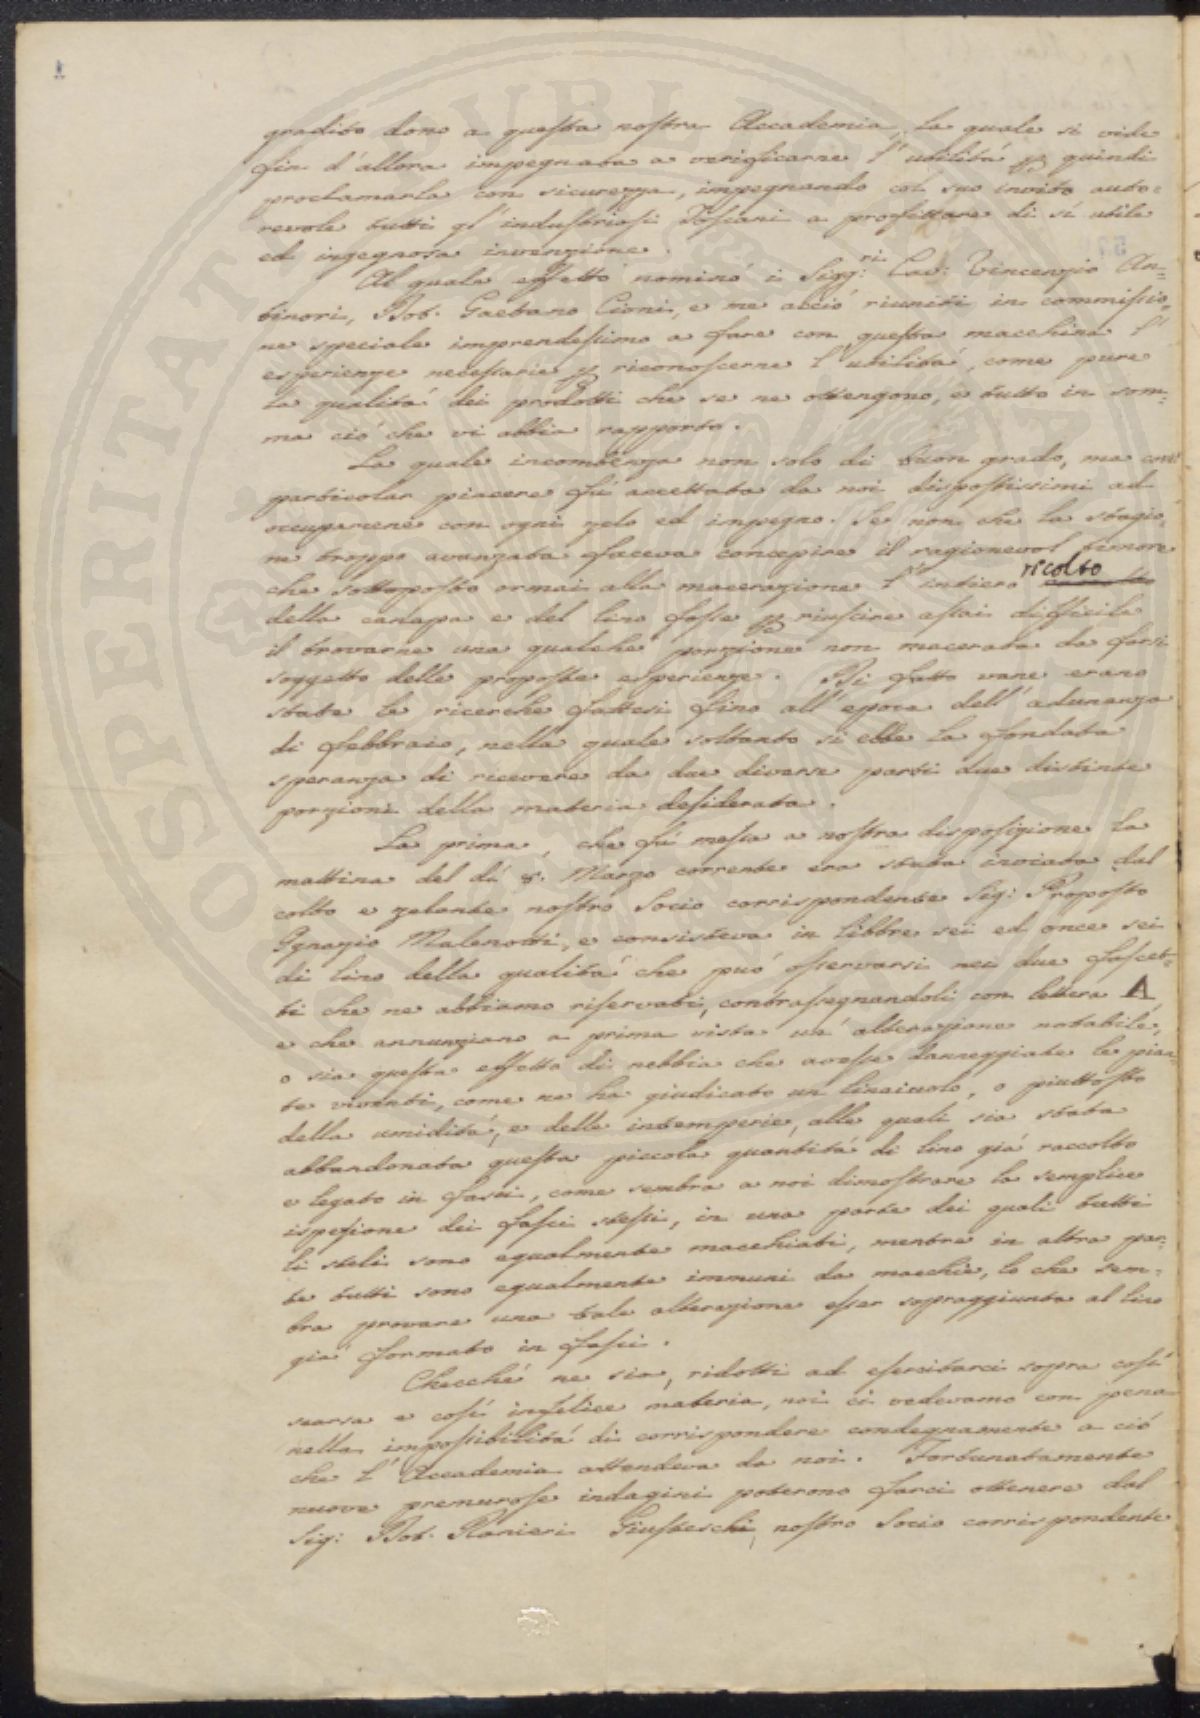 1
gradito dono a questa nostra Accademia, la quale si vide
fin d'allora impegnata a verificarne l'utilità, e quindi
proclamarla con sicurezza, impegnando col suo invito auto=
revole tutti gl'industriosi Toscani a profittare di sì utile
ed ingegnosa invenzione.
Al quale effetto nominò i Sigg:ri Cav: Vincenzio An=
tinori, Dot. Gaetano Cioni, e me acciò riuniti in commissio=
ne speciale imprendessimo a fare con questa macchina l'
esperienze necessarie p riconoscerne l'utilità, come pure
la qualità dei prodotti che se ne ottengono, e tutto in som=
ma ciò che vi abbia rapporto.
La quale incombenza non solo di buon grado, ma con
particolar piacere fù accettata da noi dispostissimi ad
occuparcene con ogni zelo ed impegno. Se non che la stagio=
ne troppo avanzata faceva concepire il ragionevol timore
che sottoposto ormai alla macerazione l'intiero ricolto
della canapa e del lino fosse p riuscire assai difficile
il trovarne una qualche porzione non macerata da farsi
soggetto delle proposte esperienze. Di fatto vane erano
state le ricerche fattesi fino all'epoca dell'adunanza
di febbraio, nella quale soltanto si ebbe la fondata
speranza di ricevere da due diverse parti due distinte
porzioni della materia desiderata.
La prima, che fù messa a nostra disposizione la
mattina del dì 8. Marzo corrente era stata inviata dal
colto e zelante nostro Socio corrispondente Sig: Proposto
Ignazio Malenotti, e consisteva in libbre sei ed once sei
di lino della qualità che può osservarsi nei due fascet=
ti che ne abbiamo riservati, contrassegnandoli con lettera A
e che annunziano a prima vista un'alterazione notabile,
o sia questa effetto di nebbia che avesse danneggiate le pian=
te viventi, come ne ha giudicato un linaiuolo, o piuttosto
della umidità, e delle intemperie, alle quali sia stata
abbandonata questa piccola quantità di lino già raccolto
e legato in fasci, come sembra a noi dimostrare la semplice
ispezione dei fasci stessi, in una parte dei quali tutti
li steli sono egualmente macchiati, mentre in altra par=
te tutti sono egualmente immuni da macchie, lo che sem=
bra provare una tale alterazione esser sopraggiunta al lino
già formato in fasci.
Checché ne sia, ridotti ad esercitarci sopra così
scarsa e così infelice materia, noi ci vedevamo con pena
nella impossibilità di corrispondere condegnamente a ciò
che l'Accademia attendeva da noi. Fortunatamente
nuove premurose indagini poterono farci ottenere dal
Sig: Dot. Ranieri Giusteschi, nostro Socio corrispondente